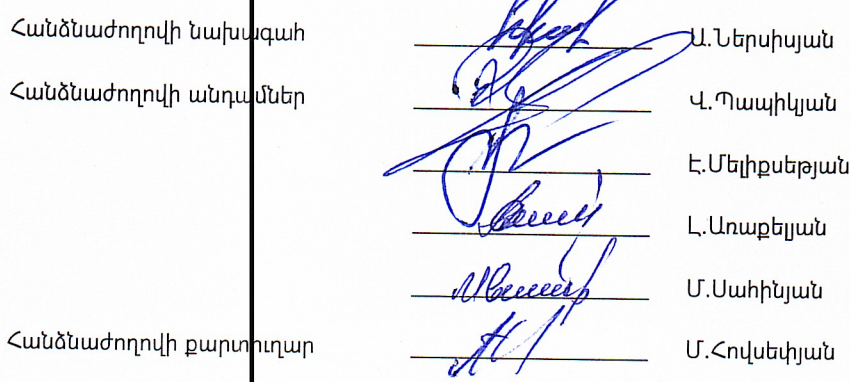 Հանձնաժողովի նախագահ Ա.Ներսիսյան
Հանձնաժողովի անդամներ Վ.Պապիկյան
Է.Մելիքսեթյան
Լ.Առաքելյան
Մ.Սահինյան
Հանձնաժողովի քարտուղար Մ.Հովսեփյան